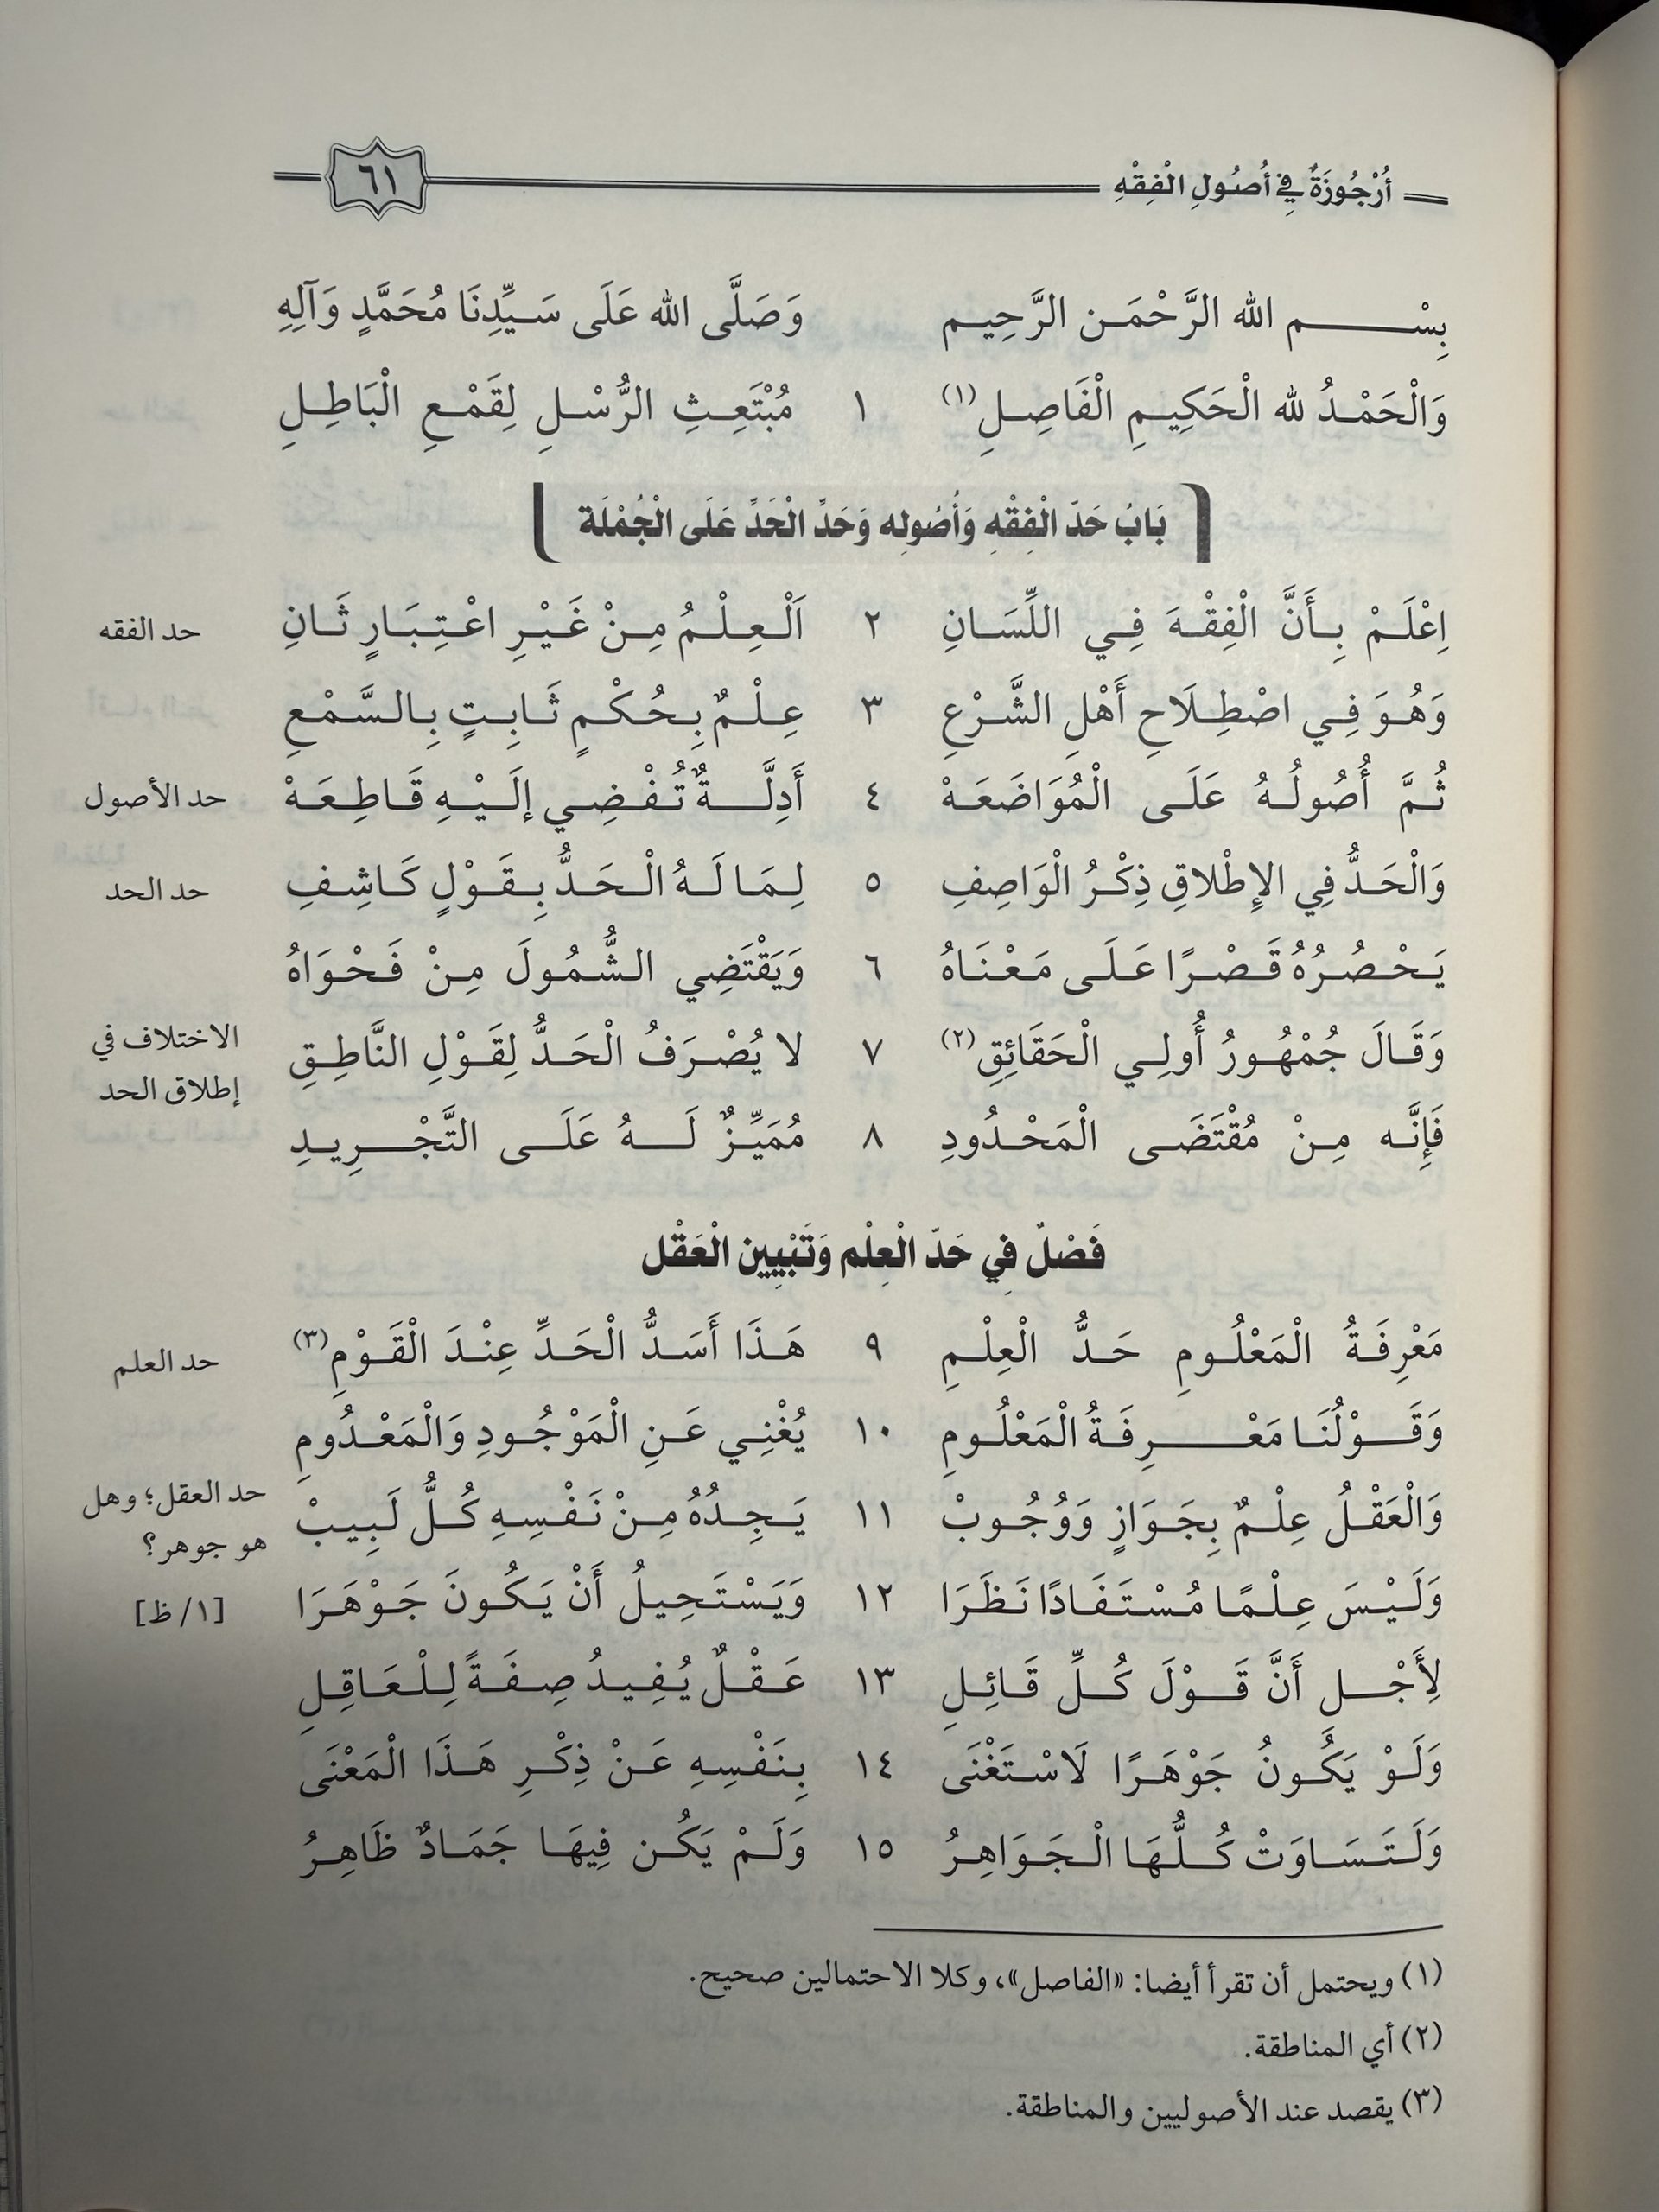 أُرْجُوزَةٌ فِي أُصُولِ الْفِقْهِ ٦١
بِسْمِ الله الرَّحْمَنِ الرَّحِيمِ وَصَلَّى الله عَلَى سَيِّدِنَا مُحَمَّدٍ وَآلِهِ
وَالْحَمْدُ لله الْحَكِيمِ الْفَاصِلِ(١) ١ مُبْتَعِثِ الرُّسْلِ لِقَمْعِ الْبَاطِلِ
بَابُ حَدّ الْفِقْهِ وَأُصُولِه وَحَدِّ الْحَدِّ عَلَى الْجُمْلَة
اِعْلَمْ بِأَنَّ الْفِقْهَ فِي اللِّسَانِ ٢ اَلْعِلْمُ مِنْ غَيْرِ اعْتِبَارٍ ثَانِ حد الفقه
وَهُوَ فِي اصْطِلَاحِ أَهْلِ الشَّرْعِ ٣ عِلْمٌ بِحُكْمٍ ثَابِتٍ بِالسَّمْعِ
ثُمَّ أُصُولُهُ عَلَى الْمُوَاضَعَهْ ٤ أَدِلَّةٌ تُفْضِي إلَيْهِ قَاطِعَهْ حد الأصول
وَالْحَدُّ فِي الإِطْلاقِ ذِكْرُ الْوَاصِفِ ٥ لِمَا لَهُ الْحَدُّ بِقَوْلٍ كَاشِفِ حد الحد
يَحْصُرُهُ قَصْرًا عَلَى مَعْنَاهُ ٦ وَيَقْتَضِي الشُّمُولَ مِنْ فَحْوَاهُ
وَقَالَ جُمْهُورُ أُولِي الْحَقَائِقِ(٢) ٧ لا يُصْرَفُ الْحَدُّ لِقَوْلِ النَّاطِقِ الاختلاف في
إطلاق الحد
فَإِنَّه مِنْ مُقْتَضَى الْمَحْدُودِ ٨ مُمَيِّزٌ لَهُ عَلَى التَّجْرِيدِ
فَصْلٌ فِي حَدّ الْعِلْم وَتَبْيِين الْعَقْل
مَعْرِفَةُ الْمَعْلُومِ حَدُّ الْعِلْمِ ٩ هَذَا أَسَدُّ الْحَدِّ عِنْدَ الْقَوْمِ(٣) حد العلم
وَقَوْلُنَا مَعْرِفَةُ الْمَعْلُومِ ١٠ يُغْنِي عَنِ الْمَوْجُودِ وَالْمَعْدُومِ
وَالْعَقْلُ عِلْمٌ بِجَوَازٍ وَوُجُوبْ ١١ يَجِدُهُ مِنْ نَفْسِهِ كُلُّ لَبِيبْ حد العقل؛ وهل
هو جوهر؟
وَلَيْسَ عِلْمًا مُسْتَفَادًا نَظَرَا ١٢ وَيَسْتَحِيلُ أَنْ يَكُونَ جَوْهَرَا [١/ ظ]
لِأَجْلِ أَنَّ قَوْلَ كُلِّ قَائِلِ ١٣ عَقْلٌ يُفِيدُ صِفَةً لِلْعَاقِلِ
وَلَوْ يَكُونُ جَوْهَرًا لَاسْتَغْنَى ١٤ بِنَفْسِهِ عَنْ ذِكْرِ هَذَا الْمَعْنَى
وَلَتَسَاوَتْ كُلُّهَا الْجَوَاهِرُ ١٥ وَلَمْ يَكُن فِيهَا جَمَادٌ ظَاهِرُ
(١) ويحتمل أن تقرأ أيضا: «الفاصل»، وكلا الاحتمالين صحيح.
(٢) أي المناطقة.
(٣) يقصد عند الأصوليين والمناطقة.